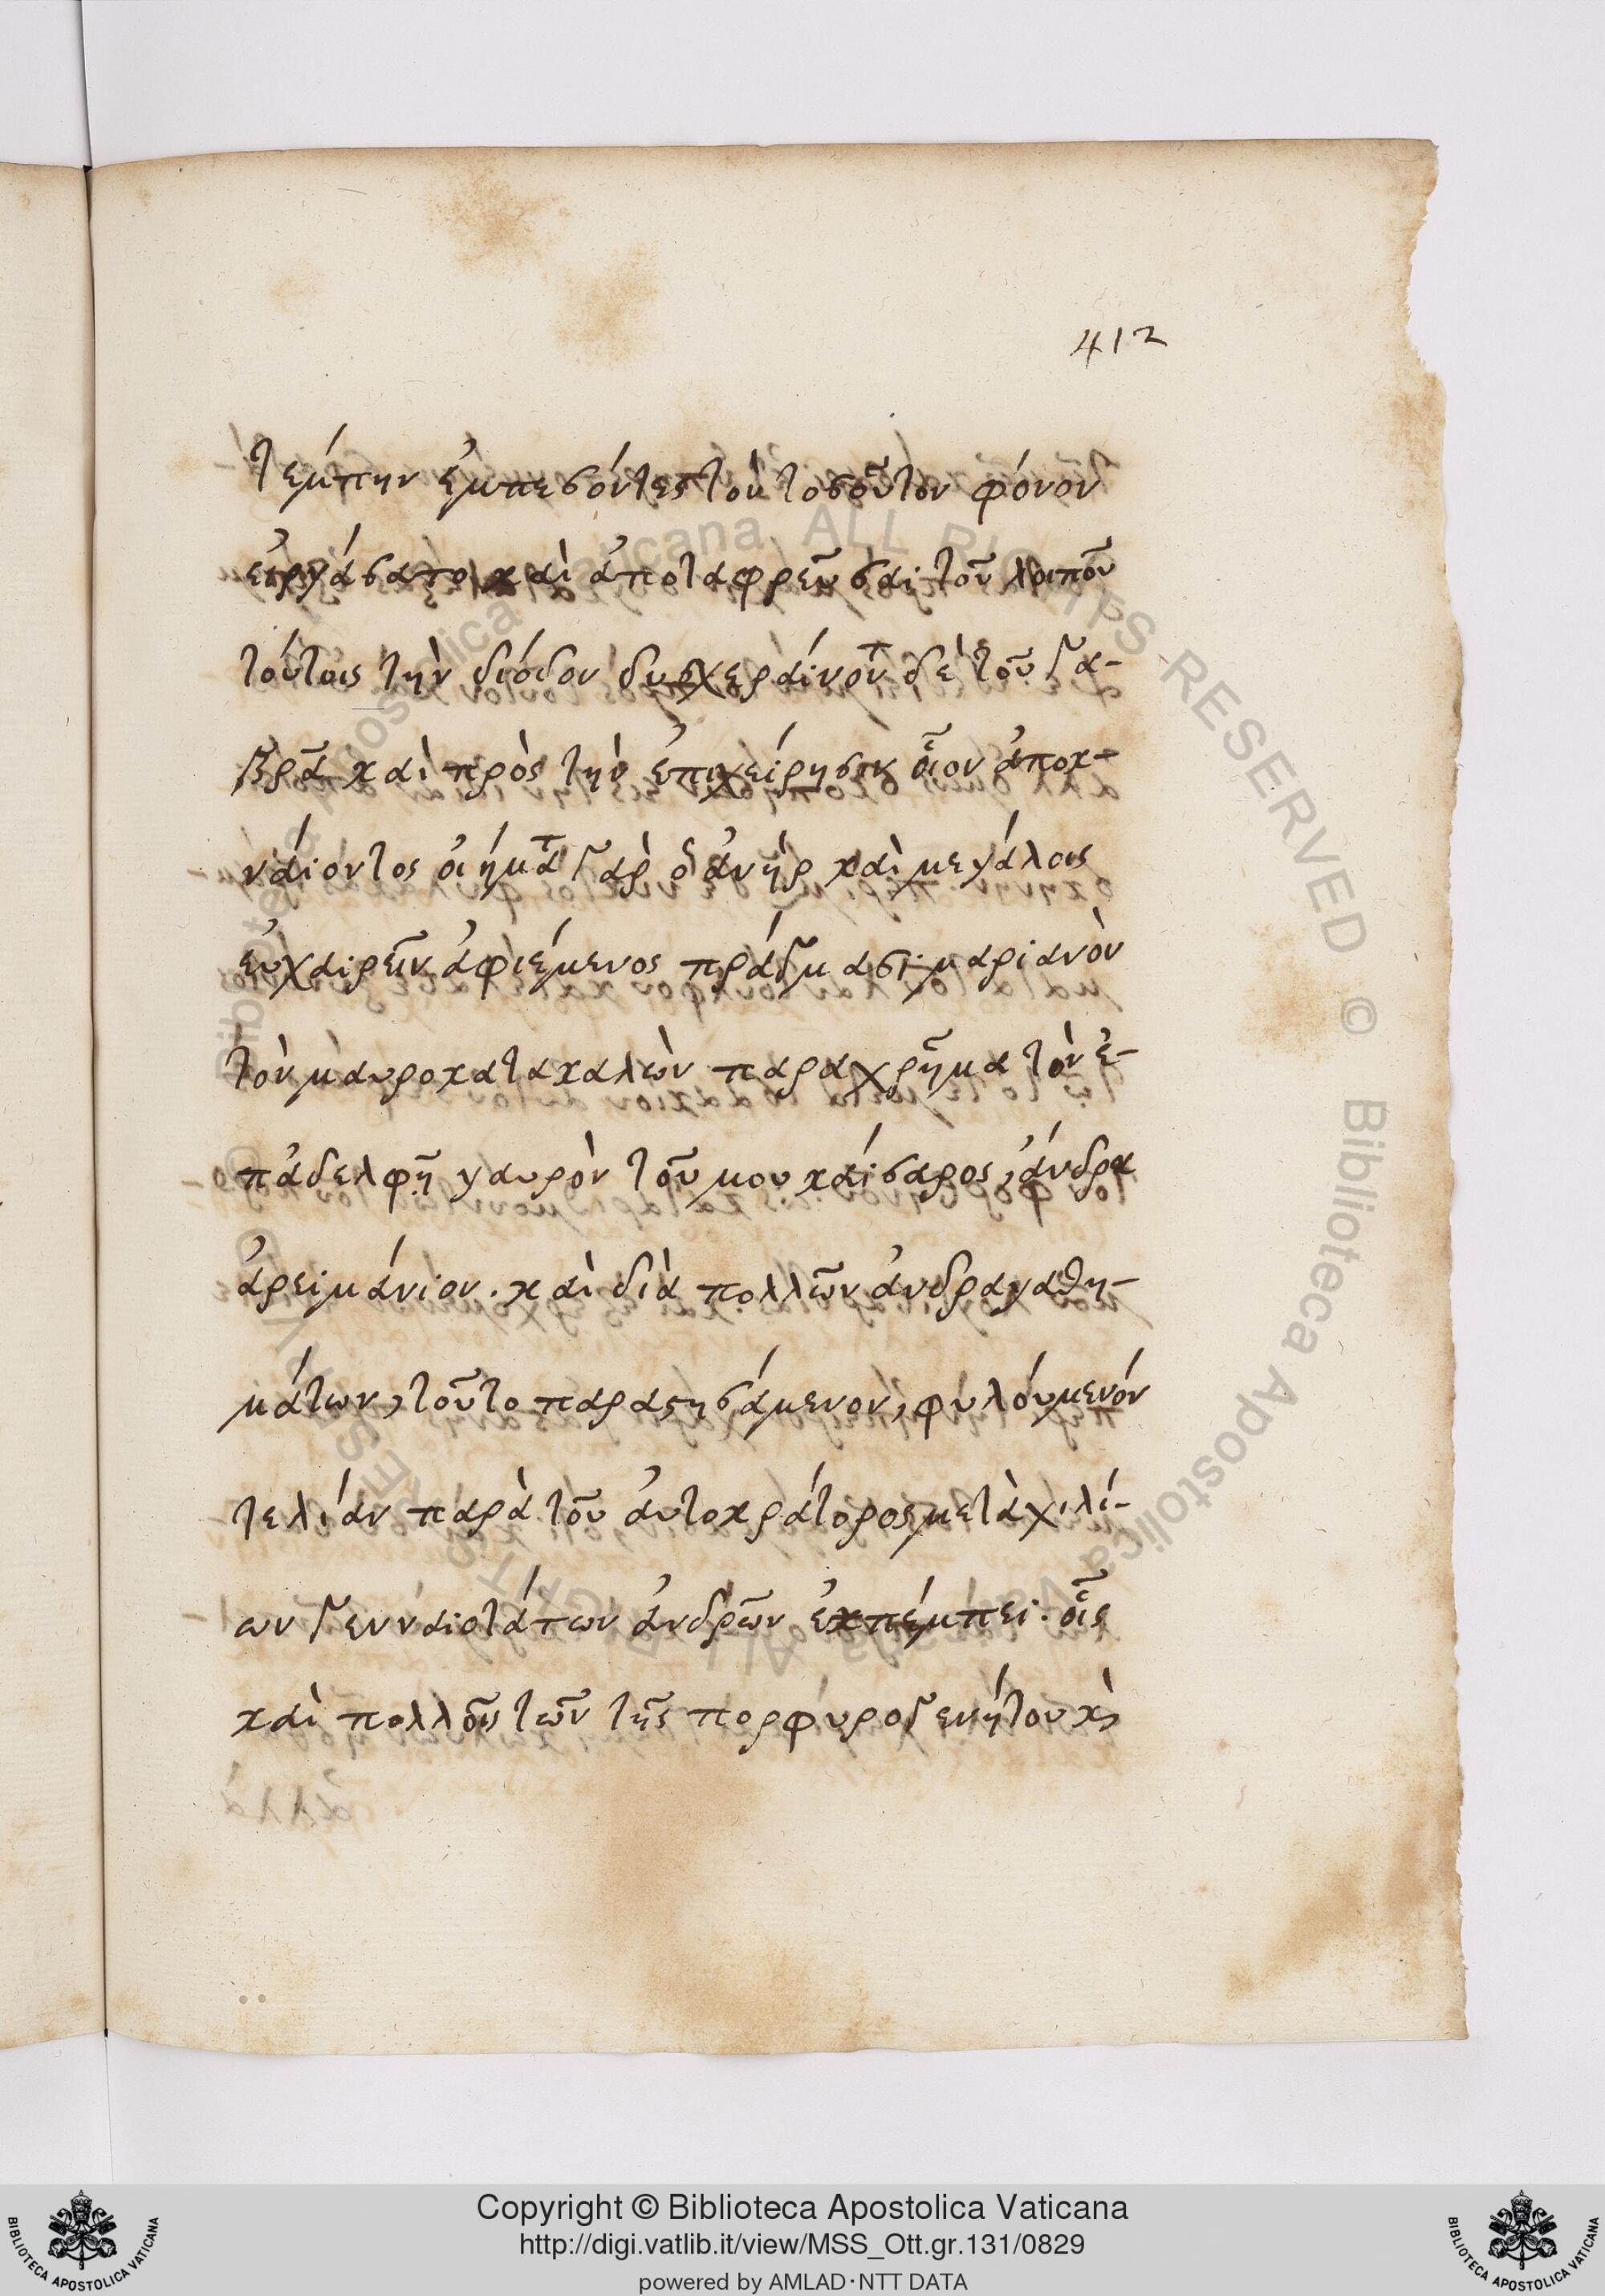 412
τέμπην ἐμπεσόντες τὸν τοσοῦτον φόνον
εἰργάσατο καὶ ἀποταφρεῦσαι τοῦ λοιποῦ
τούτοις τὴν δίοδον δυσχεραίνοντ δὲ τοῦ Γα-
βρᾶ καὶ πρὸς τὴν ἐπιχείρησιν οἷον ἀποκ-
ναίοντος οἰήματ γὰρ ὁ ἀνὴρ καὶ μεγάλοις
ἐγχαιρεῖν ἀφιέμενος πράγμασι μαριανὸν
τὸν μαυροκατακαλὼν παραχρῆμα τὸν ἐ-
πἀδελφῆ γαυρὸν τοῦ μου καίσαρος, ἄνδρα
ἀρειμάνιον. καὶ διὰ πολλῶν ἀνδραγαθη-
μάτων, τοῦτο παραστησάμενον, φυλούμενόν
τελίαν παρὰ τοῦ ἀυτοκράτορος μετὰ χιλί-
ων γενναιοτάτων ἀνδρῶν ἐκπέμπει. οἷς
καὶ πολλοῦς τῶν τῆς πορφυρογενήτου κὶ
Copyright © Biblioteca Apostolica Vaticana
http://digi.vatlib.it/view/MSS_Ott.gr.131/0829
powered by AMLAD·NTT DATA
BIBLIOTECA APOSTOLICA VATICANA
BIBLIOTECA APOSTOLICA VATICANA